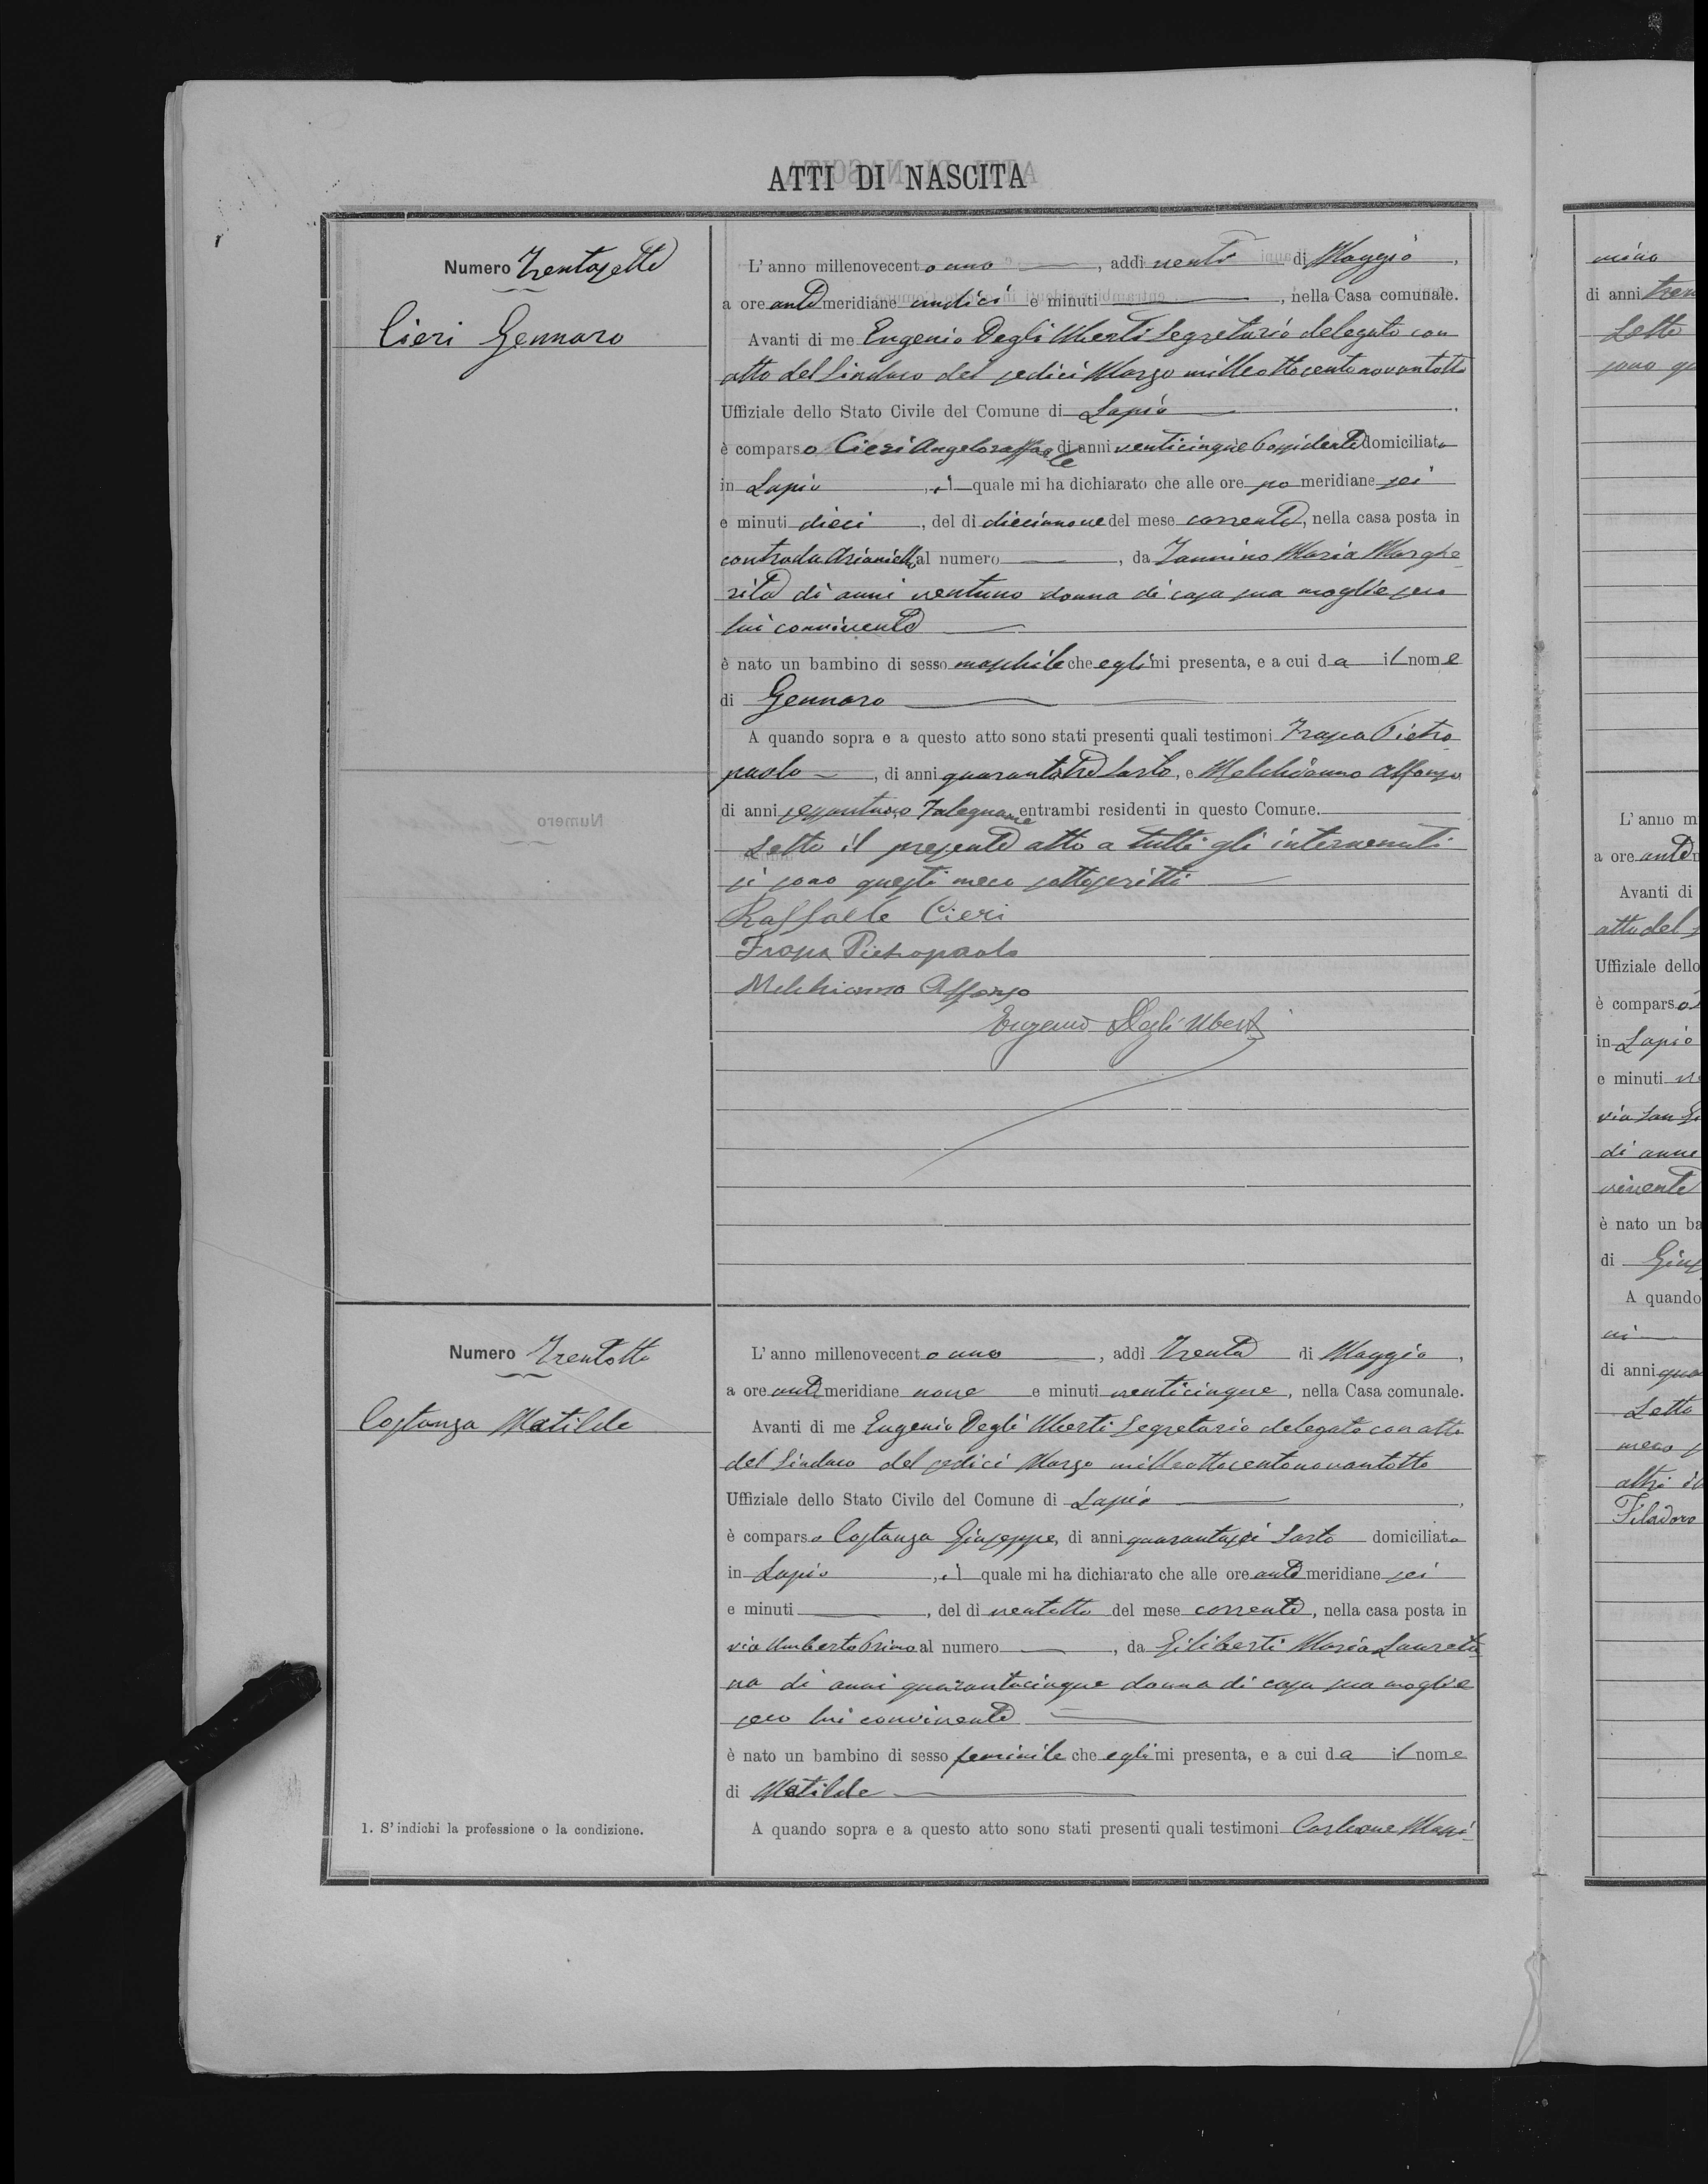 ATTI DI NASCITA
Numero Trentasette
Cieri Gennaro
L'anno millenovecento uno, addì venti di Maggio,
a ore anti meridiane undici e minuti, nella Casa comunale.
Avanti di me Eugenio Degli Uberti Segretario delegato con
atto del Sindaco del sedici Marzo milleottocentonovantotto
Uffiziale dello Stato Civile del Comune di Lapio.
è comparso Cieri Angeloraffaele di anni venticinque Possidente domiciliato
in Lapio, il quale mi ha dichiarato che alle ore po meridiane sei
e minuti dieci, del dì diecinnove del mese corrente, nella casa posta in
contrada Arianiello al numero, da Iannino Maria Marghe
rita di anni ventuno donna di casa sua moglie seco
lui convivente
è nato un bambino di sesso maschile che egli mi presenta, e a cui da il nome
di Gennaro
A quando sopra e a questo atto sono stati presenti quali testimoni Frasca Pietro
paolo, di anni quarantatre Sarto, e Melchionno Alfonso
di anni sessantuno Falegname entrambi residenti in questo Comune.
Letto il presente atto a tutti gli intervenuti
si sono questi meco sottoscritti
Raffaele Cieri
Frasca Pietropaolo
Melchionno Alfonso
Eugenio Degli Uberti
Numero Trentotto
Costanza Matilde
L'anno millenovecento uno, addì Trenta di Maggio,
a ore anti meridiane nove e minuti venticinque, nella Casa comunale.
Avanti di me Eugenio Degli Uberti Segretario delegato con atto
del Sindaco del sedici Marzo milleottocentonovantotto
Uffiziale dello Stato Civile del Comune di Lapio,
è comparso Costanza Giuseppe, di anni quarantasei Sarto domiciliato
in Lapio, il quale mi ha dichiarato che alle ore anti meridiane sei
e minuti, del dì ventotto del mese corrente, nella casa posta in
via Umberto Primo al numero, da Giliberti Maria Laureta
na di anni quarantacinque donna di casa sua moglie
seco lui convivente
è nato un bambino di sesso feminile che egli mi presenta, e a cui da il nome
di Matilde
A quando sopra e a questo atto sono stati presenti quali testimoni Carbone Massi
1. S'indichi la professione o la condizione.
mino
di anni tren
Letto
sono qu
L'anno m
a ore anti
Avanti di
atto del s
Uffiziale dello
è comparso
in Lapio
e minuti
via San G
di anni
vivente
è nato un ba
di Gius
A quando
di anni qua
Letto
meco s
altri
Filadoro